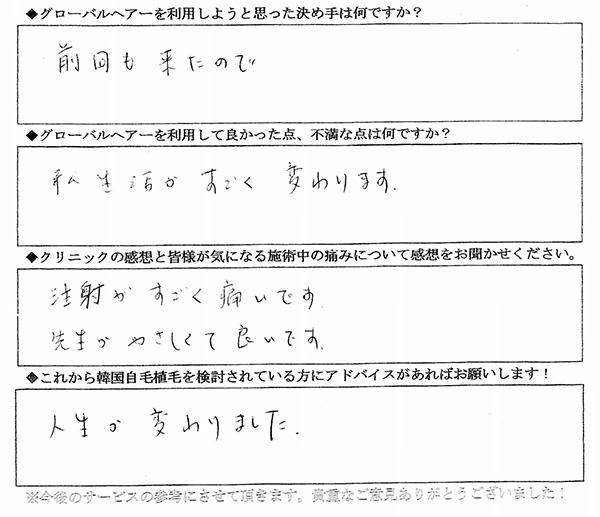 ◆グローバルヘアーを利用しようと思った決め手は何ですか？
前回も来たので
◆グローバルヘアーを利用して良かった点、不満な点は何ですか？
私生活がすごく変わります.
◆クリニックの感想と皆様が気になる施術中の痛みについて感想をお聞かせください。
注射がすごく痛いです.
先生がやさしくて良いです.
◆これから韓国自毛植毛を検討されている方にアドバイスがあればお願いします！
人生が変わりました.
※今後のサービスの参考にさせて頂きます。貴重なご意見ありがとうございました！